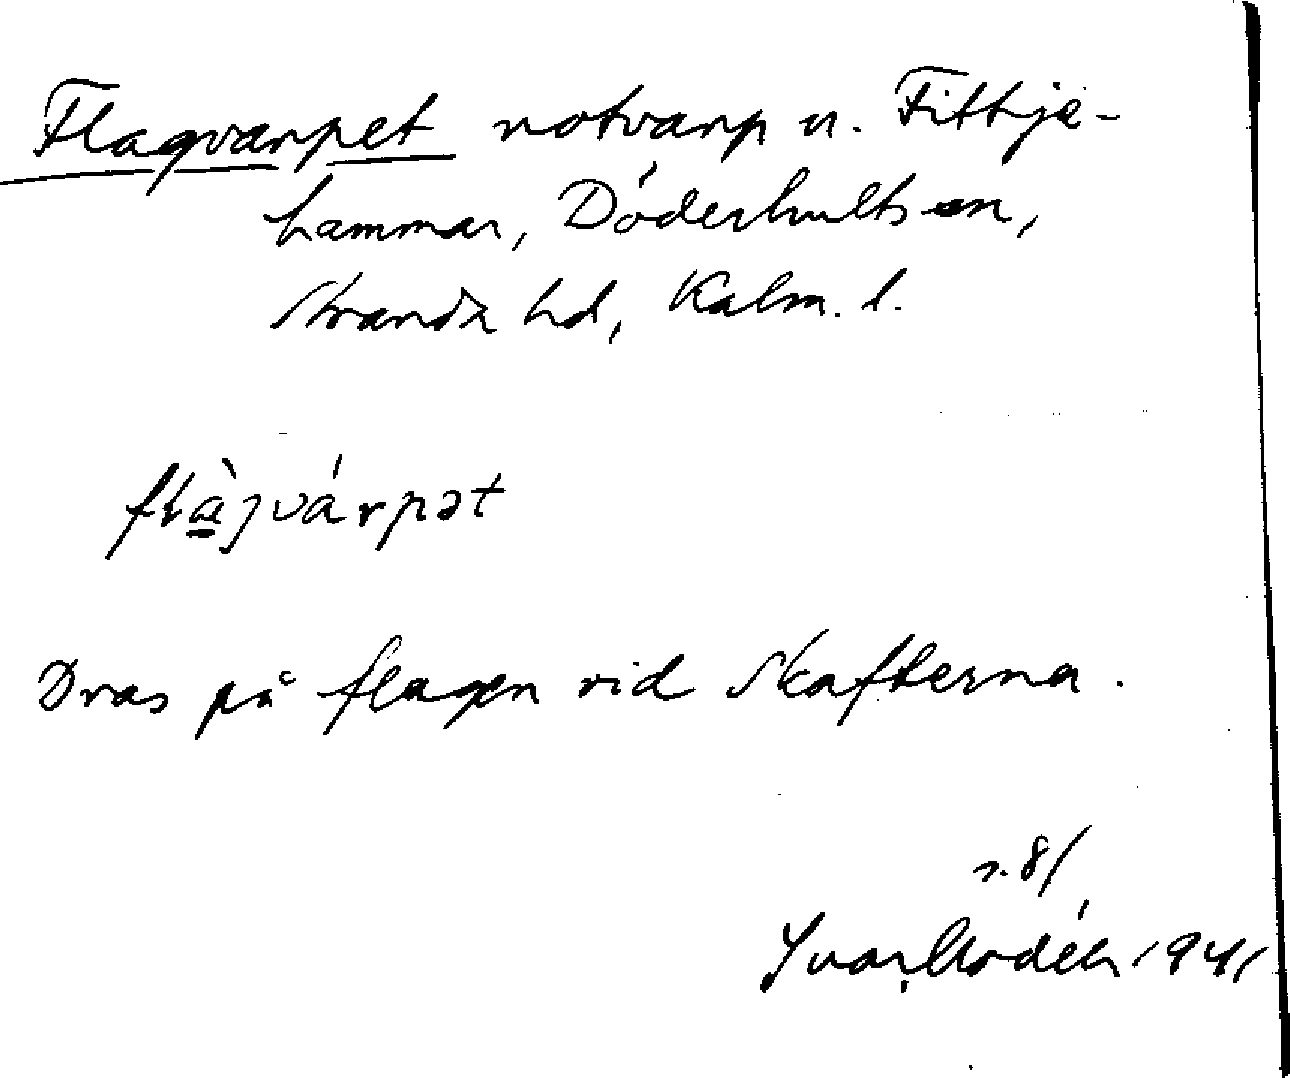 Flagvarpet notvarp n. Fittje-
hammar, Döderhults sn,
Stranda hd, Kalm. l.
flàgvárpət
Dras på flagen vid Skafterna.
s. 8/
Ivar Modéer 1941